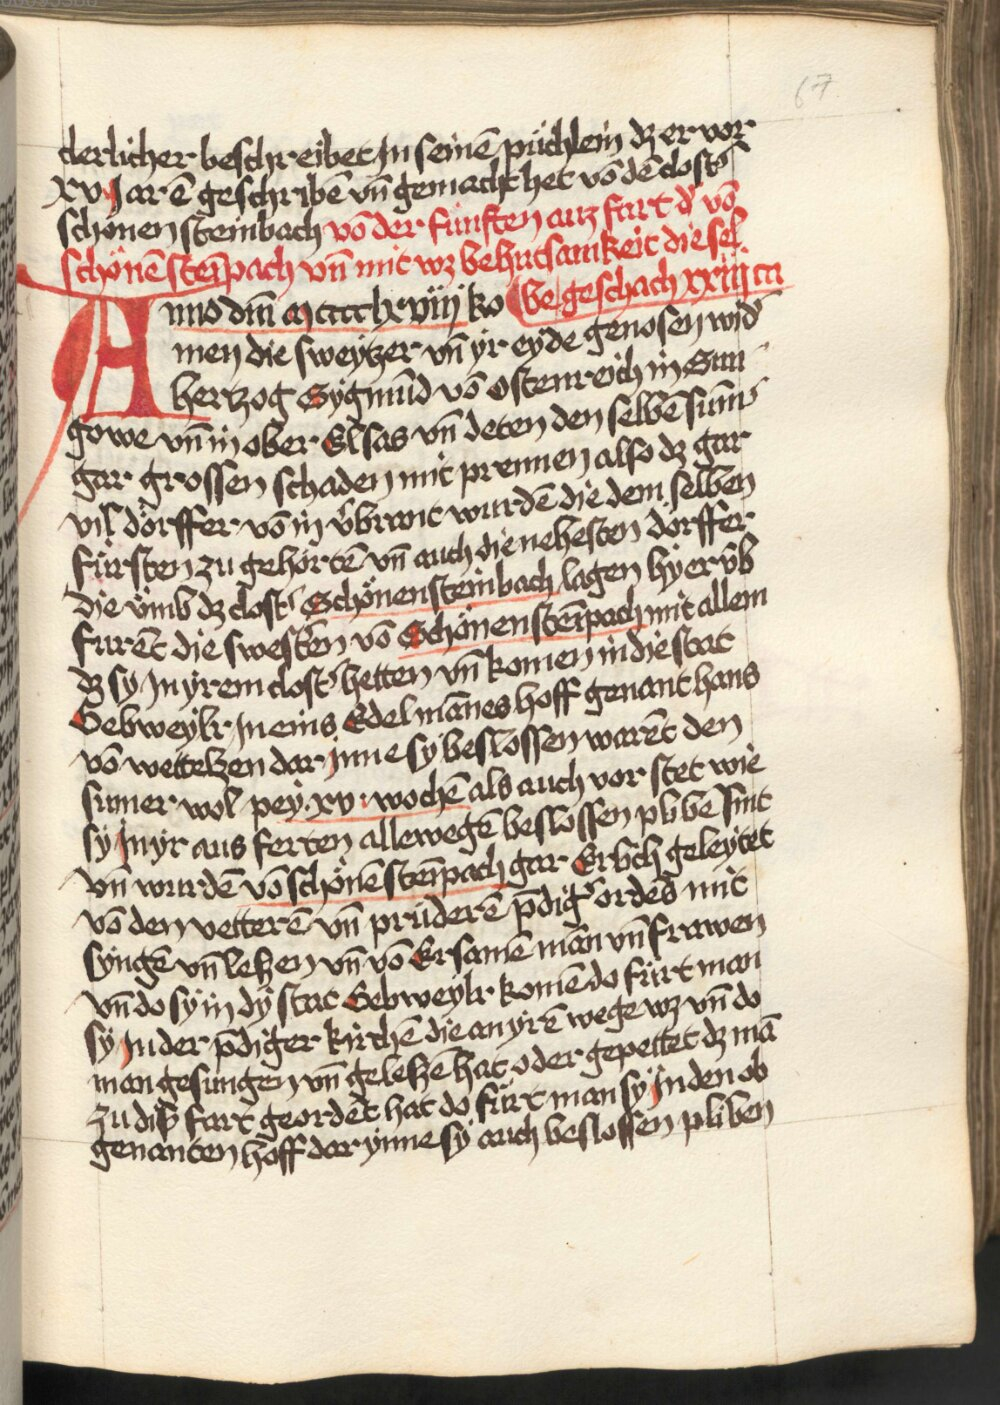 67
derlicher beschreibet In seinē püchlein dz er vor
xv Jarē geschribē vn̄ gemacht het vō dē clost᷑
schonen steinbach vō der fünften auz fart d᷑ vō
schönēsteīpach vn̄ mit wz behutsamkeit die sel
be geschach xxiiii ca
Anno dn̄i mcccclxviij ko
men die sweytzer vn̄ yr eyde genosen wid᷑
hertzog Sygmūd vō Ostenreich in Sun
gowe vn̄ in ober Elsas vn̄ deten den selbē sum᷑
gar grossen schaden mit prennen also dz gar
vil dörffer vō in v᷑brant wurdē die dem selben
fürsten zu gehörtē vn̄ auch die nehesten dörffer
die vm̄b dz clost᷑ Schönensteinbach lagen hyerv̄b
furēt die swestēn vō Schönensteīpach mit allem
dz sy In yrem clost᷑ hetten vn̄ komen in die stat
Gebweylr In eins Edelmānes hoff genant hans
vō wettelzen dar Inne sy beslossen warēt den
sumer wol pey xv wochē als auch vor stet wie
sy In yr aus ferten allewegē beslossen plibē sint
vn̄ wurdē vō schönēsteīpach gar Erbch geleytet
vō den vetterē vn̄ prüderē p̄dig᷑ ordēs mit
syngē vn̄ leßen vn̄ vō Ersamē mān vn̄ frawen
vn̄ do sy in dy stat Gebweylr komē do fürt man
sy In der p̄diger kirchē die an yrē wege wz vn̄ do
man gesungen vn̄ geleßē hat oder gepettet dz mā
zu diß fart geordēt hat do fürt man sy In den ob
genanten hoff dar ynne sy auch beslossen pliben